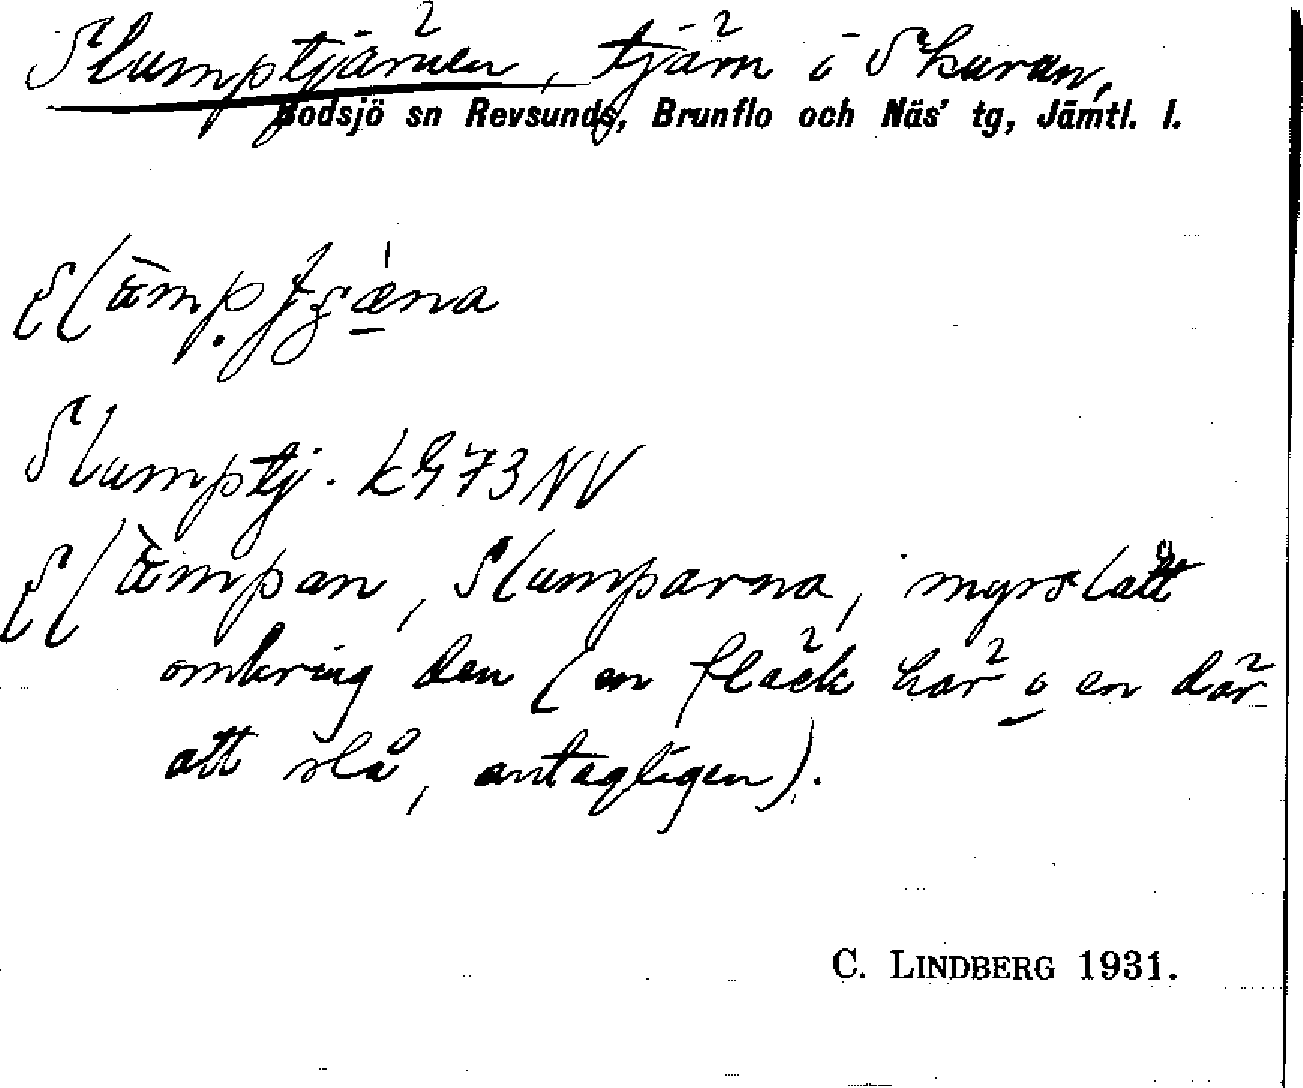 Slumptjärnen, tjärn i Skurun,
Bodsjö sn Revsunds, Brunflo och Näs' tg, Jämtl. l.
Slumptj. k G 73 NV
Slumparna, myrslått
omkring den (en fläck här o en där
att slå, antagligen).
C. LINDBERG 1931.